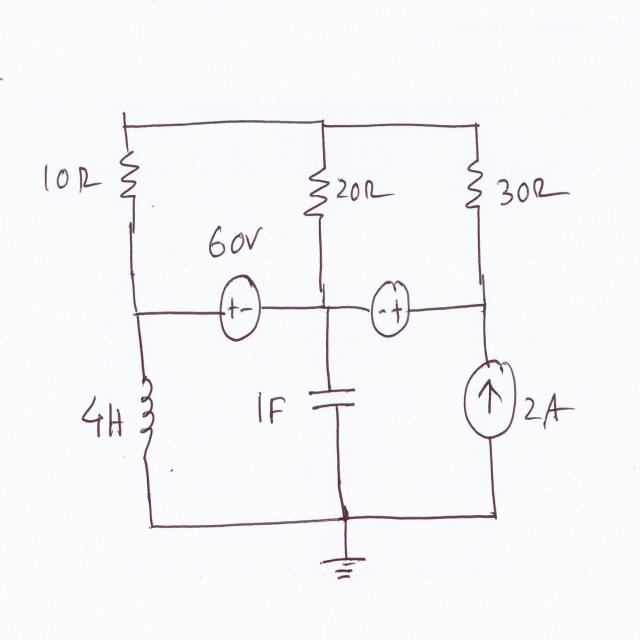 10Ω
20Ω
30Ω
60V
+-
-+
4H
1F
2A